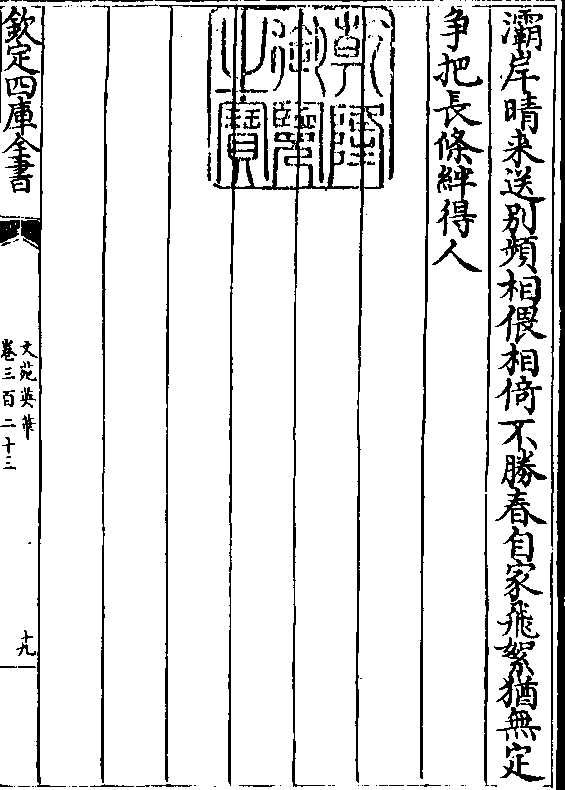 灞岸晴来送别頻相偎相倚不勝春自家飛絮猶無定
争把長條絆得人
乾隆御覽之寶
欽定四庫全書
文苑英華
卷三百二十三
十九